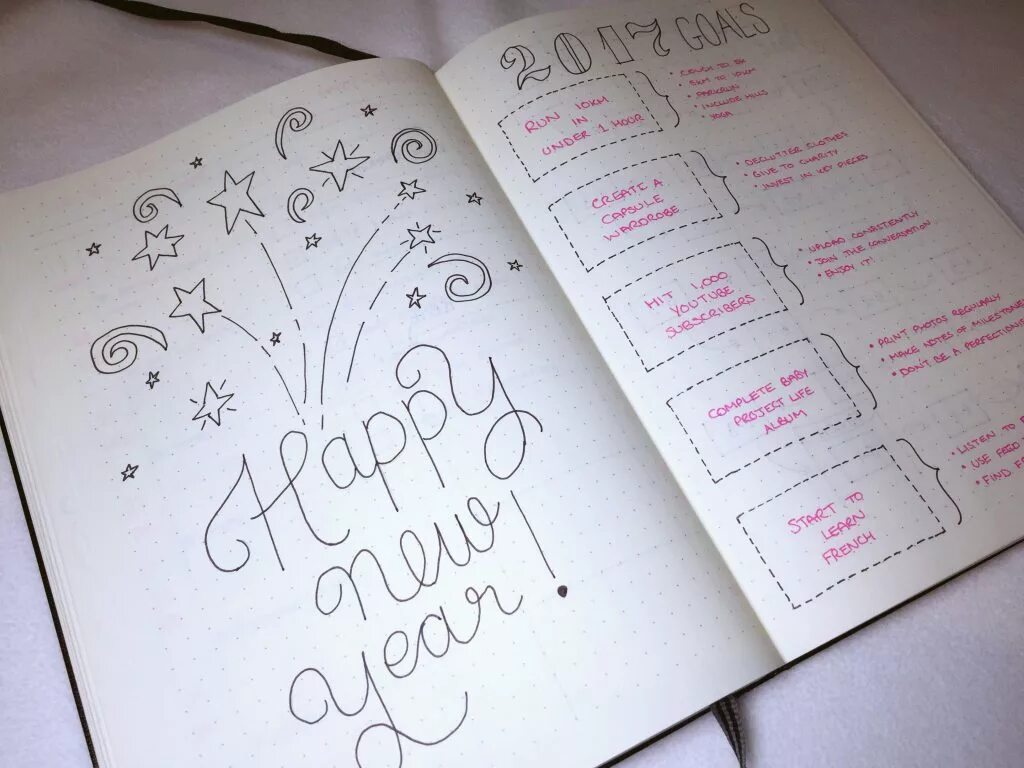 Happy
new
year!
2017 GOALS
RUN 10KM
IN
UNDER 1 HOUR
• COUCH TO 5K
• 5KM TO 10KM
• PARKRUN
• INCLUDE HILLS
• YOGA
CREATE A
CAPSULE
WARDROBE
• DECLUTTER CLOTHES
• GIVE TO CHARITY
• INVEST IN KEY PIECES
HIT 1,000
YOUTUBE
SUBSCRIBERS
• UPLOAD CONSISTENTLY
• JOIN THE CONVERSATION
• ENJOY IT!
COMPLETE BABY
PROJECT LIFE
ALBUM
• PRINT PHOTOS REGULARLY
• MAKE NOTES OF MILESTONES
• DON'T BE A PERFECTIONIS
START TO
LEARN
FRENCH
• LISTEN TO
• USE
• FIND